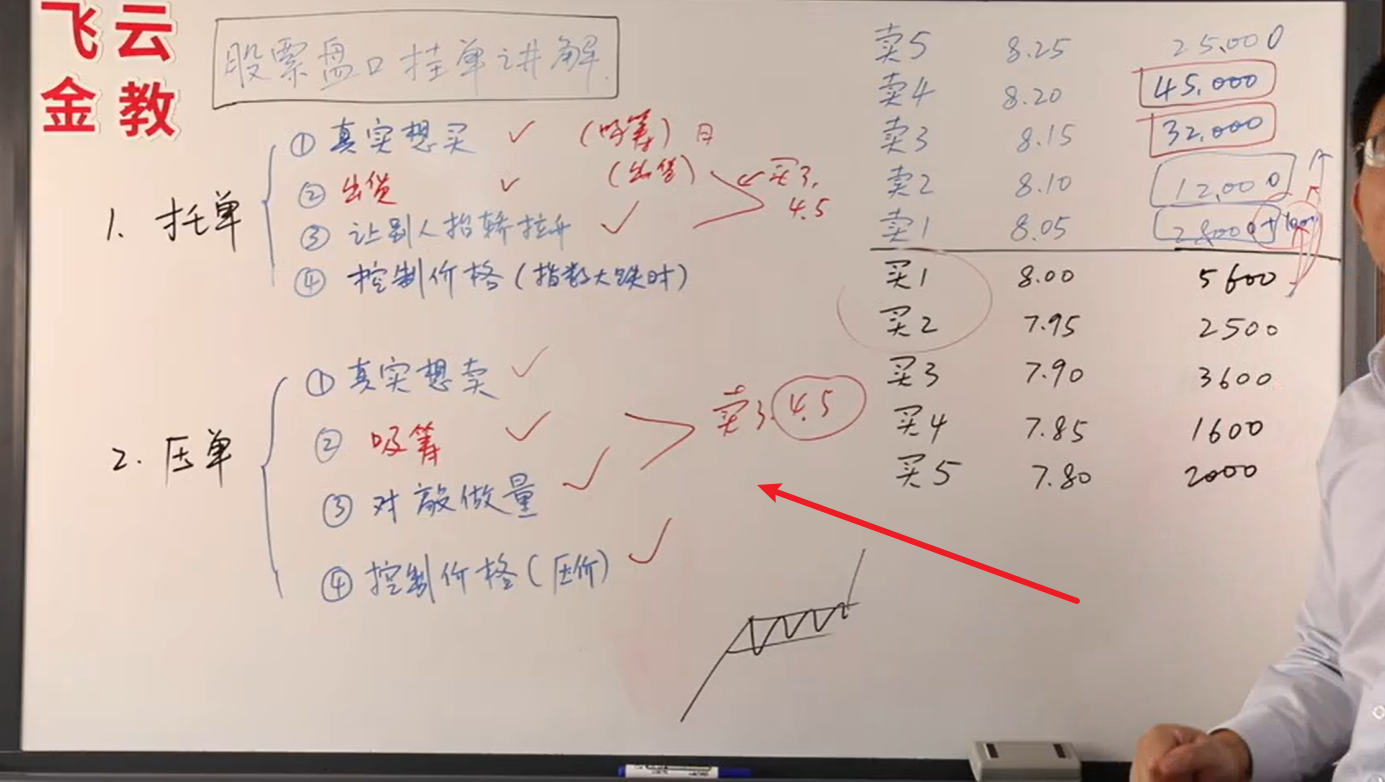 飞云
金教
股票盘口挂单讲解
1. 托单
① 真实想买 ✓ (吸筹) 日
② 出货 ✓ (出货)
③ 让别人抬轿拉升 ✓
④ 控制价格(指数大跌时)
买3.
4.5
2. 压单
① 真实想卖 ✓
② 吸筹 ✓
③ 对敲做量 ✓
④ 控制价格(压价) ✓
卖3.4.5
卖5 8.25 25,000
卖4 8.20 45,000
卖3 8.15 32,000
卖2 8.10 12,000
卖1 8.05
买1 8.00 5600
买2 7.95 2500
买3 7.90 3600
买4 7.85 1600
买5 7.80 2000